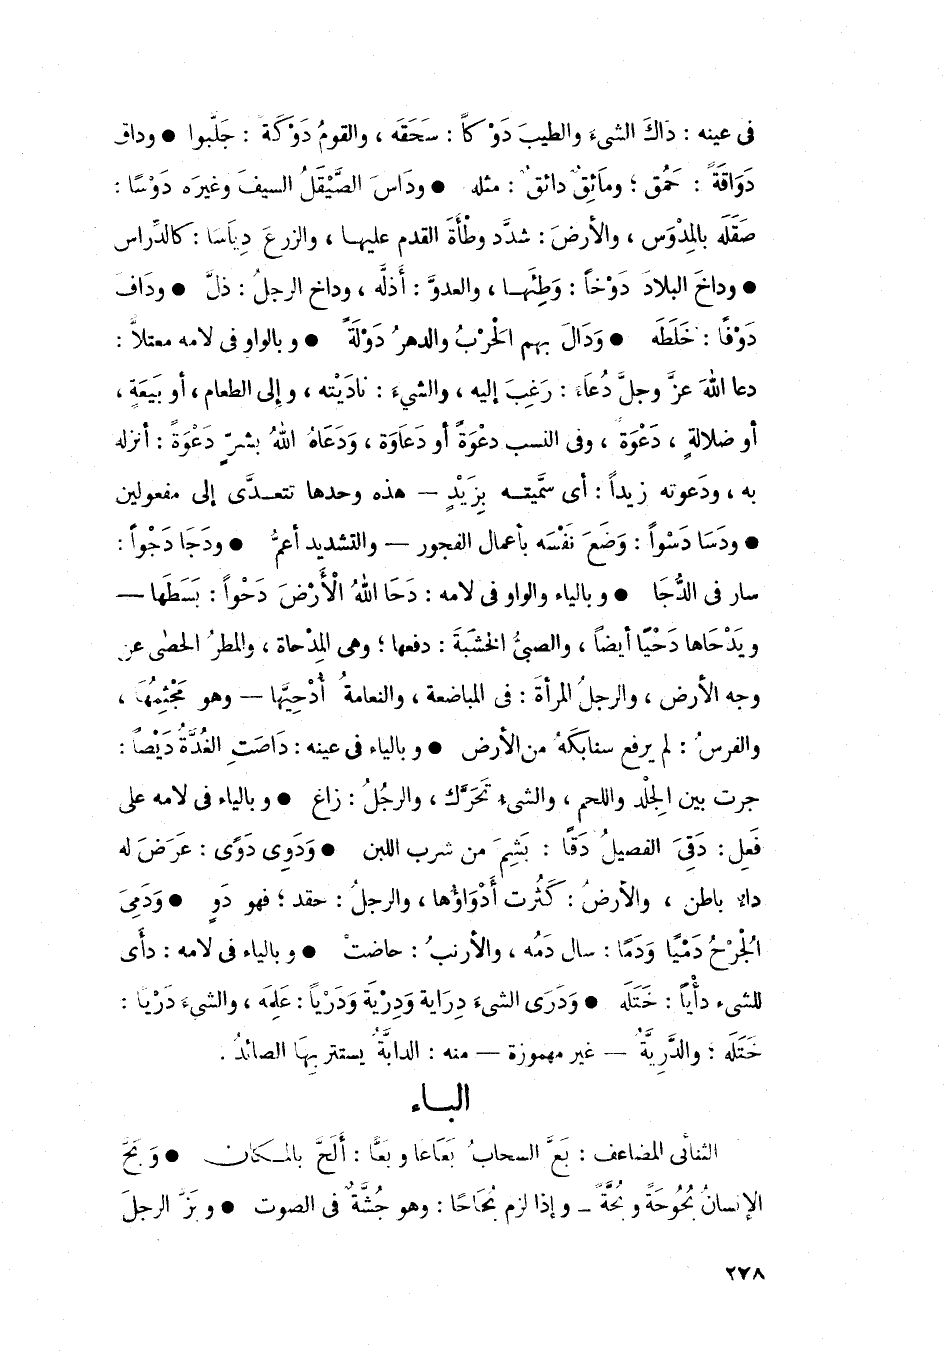 فى عينه : دَاكَ الشىءَ والطيبَ دَوْكاً : سَحَقَه ، والقومُ دَوْكَة : جَلَّبوا ● وداق
دَوَاقَةً : حَمُق ؛ ومَائِقٌ دائق : مثله ● ودَاسَ الصَّيْقَلُ السيفَ وغيرَه دَوْسًا :
صَقَلَه بالمِدْوَس ، والأرضَ : شدَّد وطْأَةَ القدم عليهـا ، والزرعَ دِيَاسَا : كالدِّراس
● وداخَ البلادَ دَوْخاً : وَطِئَهـا ، والعدوَّ : أَذلَّه ، وداخ الرجلُ : ذلَّ ● ودَافَ
دَوْفًا : خَلَطَه ● وَدَالَ بهم الحَرْبُ والدهرُ دَوْلَةً ● وبالواو فى لامه معتلاًّ :
دعا اللهَ عزَّ وجلَّ دُعَاءً : رَغِبَ إليه ، والشىءَ : نادَيْته ، وإلى الطعام ، أو بَيعَةٍ ،
أو ضلالةٍ ، دَعْوَة ، وفى النسب دعْوَةً أو دَعَاوَة ، وَدَعَاهُ اللهُ بشرٍّ دَعْوَةً : أنزله
به ، ودَعوته زيداً : أى سَمَّيتــه بِزَيْدٍ — هذه وحدها تتعــدَّى إلى مفعولين
● ودَسَا دَسْواً : وَضَعَ نَفْسَه بأعمال الفجور — والتشديد أعمُّ ● ودَجَا دَجْواً :
سار فى الدُّجَا ● وبالياء والواو فى لامه : دَحَا اللهُ الْأَرْضَ دَحْواً : بَسَطَها —
ويَدْحَاها دَحْيًا أيضاً ، والصبىُّ الخشَبَةَ : دفعها ؛ وهى المِدْحاة ، والمطرُ الحصٰى عن
وجه الأرض ، والرجلُ المرأةَ : فى المباضعة ، والنعامةُ أُدْحِيَّها — وهو مَجْثِمُهَا ،
والفرسُ : لم يرفع سنابكَهُ من الأرض ● وبالياء فى عينه : دَاصَتِ الغُدَّةُ دَيْصاً :
جرت بين الجِلْد واللحم ، والشىء تَحَرَّك ، والرجُلُ : زاغ ● وبالياء فى لامه على
فَعِل : دَقِىَ الفصيلُ دَقًا : بَشِمَ من شرب اللبن ● وَدَوِى دَوًى : عَرَضَ له
داء باطن ، والأرضُ : كَثُرت أَدْوَاؤُها ، والرجلُ : حقد ؛ فهو دَوٍ ● وَدَمِىَ
الجُرْحُ دَمْيًا وَدَمًا : سال دَمُه ، والأرنبُ : حاضتْ ● وبالياء فى لامه : دأَى
للشىء دأْياً : خَتَلَه ● وَدَرَى الشىءَ دِرَاية وَدِرْيَة وَدَرْياً : عَلِمَه ، والشىءَ دَرْيًا :
خَتَلَه ؛ والدَّرِيَّةُ — غير مهموزة — منه : الدابَّةُ يستتر بِهَا الصائدُ .
البــاء
الثنائى المضاعف : بَعَّ السحابُ بَعَاعا وبَعًّا : أَلَحَّ بالمـكان ● وَبَحَّ
الإنسانُ بُحُوحَةً وبُحَّةً — وإذا لزم بُحَاحًا : وهو جُشَّةٌ فى الصوت ● وبَزَّ الرجلَ
٢٧٨